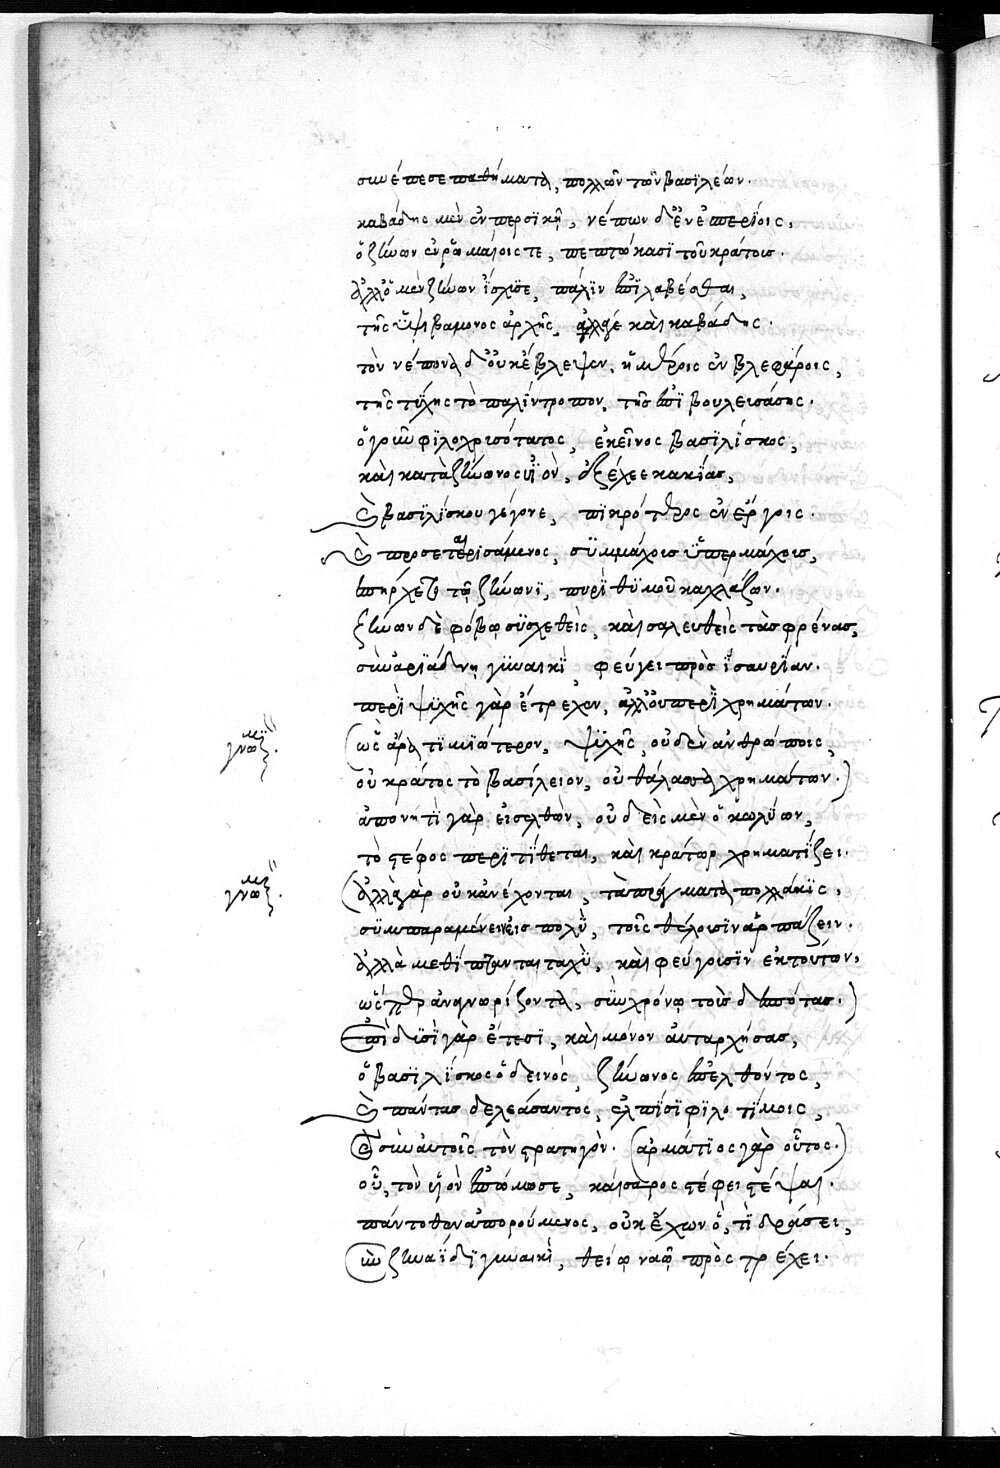 συνέπεσε παθήματα, πολλῶν τῶν βασιλέων.
καβάδης μὲν ἐν περσικῆ, νέπων δ' ἐν ἑσπερίοις,
ὁ ζήνων ἐν ῥωμαίοις τε, πεπτώκασι τοῦ κράτους.
ἀλλ' ὁ μὲν ζήνων ἴσχυσε, πάλιν ἐπιλαβέσθαι,
τῆς ὑψιβάμονος ἀρχῆς, ἀλλά γε καὶ καβάδης.
τὸν νέπωνα δ' οὐκ ἔβλεψεν, ἡμέροις ἐν βλεφάροις,
τῆς τύχης τὸ παλίντροπον, τῆς ἐπιβουλευσάσης.
ὁ γοῦν φιλοχρυσότατος, ἐκεῖνος βασιλίσκος,
καὶ κατὰ ζήνωνος ἰὸν, ἐξέχεε κακίας,
καὶ βασιλίσκου γέγονε, πικρότερος ἐν ἔργοις.
καὶ προσεταιρισάμενος, συμμάχους ὑπερμάχους,
ἐπήρχετο τῷ ζήνωνι, πυρὶ θυμοῦ καχλάζων.
ζήνων δὲ φόβῳ συσχεθεὶς, καὶ σαλευθεὶς τὰς φρένας,
σὺν ἀριάδνη γυναικὶ, φεύγει πρὸς ἰσαυρίαν.
περὶ ψυχῆς γὰρ ἔτρεχεν, ἀλλ' οὐ περὶ χρημάτων.
(ὡς ἄρα τιμιώτερον, ψυχῆς, οὐδὲν ἀνθρώποις,
οὐ κράτος τὸ βασίλειον, οὐ θάλασσα χρημάτων.)
ἀπονητὶ γὰρ εἰσελθὼν, οὐδεὶς μὲν ὁ κωλύων,
τὸ στέφος περιτίθεται, καὶ κράτωρ χρηματίζει.
(ἀλλὰ γὰρ οὐκ ἀνέχονται, τὰ πράγματα πολλάκις,
συμπαραμένειν εἰς πολὺ, τοῖς θέλουσιν ἁρπάζειν.
ἀλλὰ μεθίπτανται ταχὺ, καὶ φεύγουσιν ἐκ τούτων,
ὥσπερ ἀναγνωρίζοντα, σὺν χρόνῳ τοὺς δεσπότας.)
ἐπὶ δυσὶ γὰρ ἔτεσι, καὶ μόνον αὐταρχήσας,
ὁ βασιλίσκος ὁ δεινὸς, ζήνωνος ἐπελθόντος,
καὶ πάντας δελεάσαντος, ἐλπίσι φιλοτίμοις,
καὶ σὺν αὐτοῖς τὸν στρατηγὸν. (ἁρμάτιος γὰρ οὗτος.)
οὗ, τὸν υἱὸν ἐπώμοσε, καίσαρος στέφει στέψαι.
πάντοθεν ἀπορούμενος, οὐκ ἔχων ὅ, τι δράσει,
σὺν ζηναΐδι γυναικὶ, θείῳ ναῷ προστρέχει.